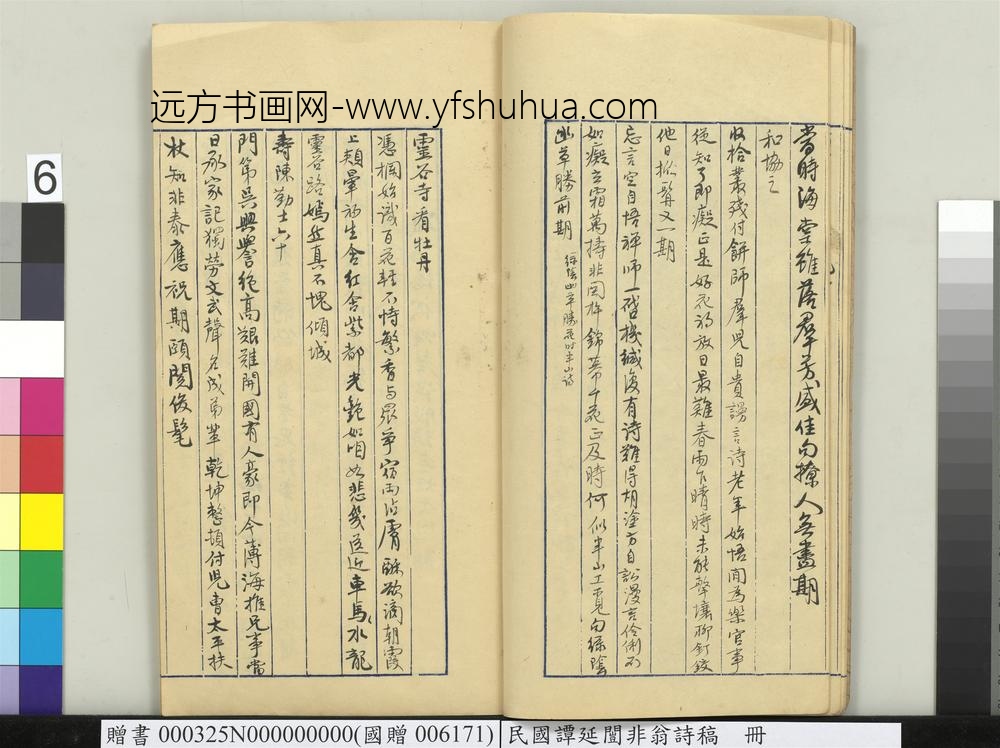 當時海棠雖落羣芳盛佳句撩人無盡期
和協之
收拾叢殘付餅師羣兒自貴謾言詩老年始悟閒為樂官事
從知了即癡正是好花初放日最難春雨乍晴時未能擊壤聊釘鉸
他日掀髯又一期
忘言空自悟禪師一啓機緘復有詩難得胡塗方自訟漫言伶俐不
如癡立霜萬擣非同杵錦幕千花正及時何似半山工覓句綠陰
幽草勝前期
綠陰幽草勝花時半山詩
靈谷寺看牡丹
憑欄始識百花輕不恃繁香與眾爭宿雨沾膚酥欲滴朝霞
上頰暈初生含紅含紫都光艷如咍如悲幾送迎車馬水龍
靈谷路嫣然真不愧傾城
壽陳勤士六十
門第吳興譽絕高艱難開國有人豪即今薄海推兄事當
日承家記獨勞文武聲名成弟輩乾坤整頓付兒曹太平扶
杖知非泰應祝期頤閱俊髦
远方书画网-www.yfshuhua.com
6
贈書 000325N000000000(國贈 006171)
民國譚延闓非翁詩稿 冊